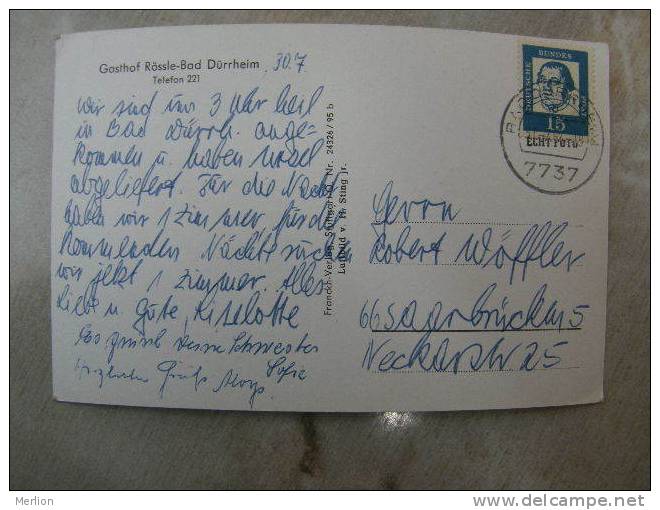 Gasthof Rössle-Bad Dürrheim
Telefon 221
30.7
wir sind um 3 Uhr heil
in Bad Dürrh. ange-
kommen u. haben
abgeliefert. Für die Nacht
haben wir 1 Zimmer für die
kommenden Nächte suchen
wir jetzt 1 Zimmer. Alles
Liebe u. Gute, Liselotte
Es grüsst Deine Schwester
Sofie
Herzliche Grüße Aloys
Franckh-Verlag, Stuttgart-O, Nr. 24326/95 b
Luftbild v. H. Sting jr.
DEUTSCHE
BUNDES
POST
15
ECHT FOTO
7737
Herrn
Robert Wöffler
66 Saarbrücken 5
Neckarstr 25
Merlion
www.delcampe.net